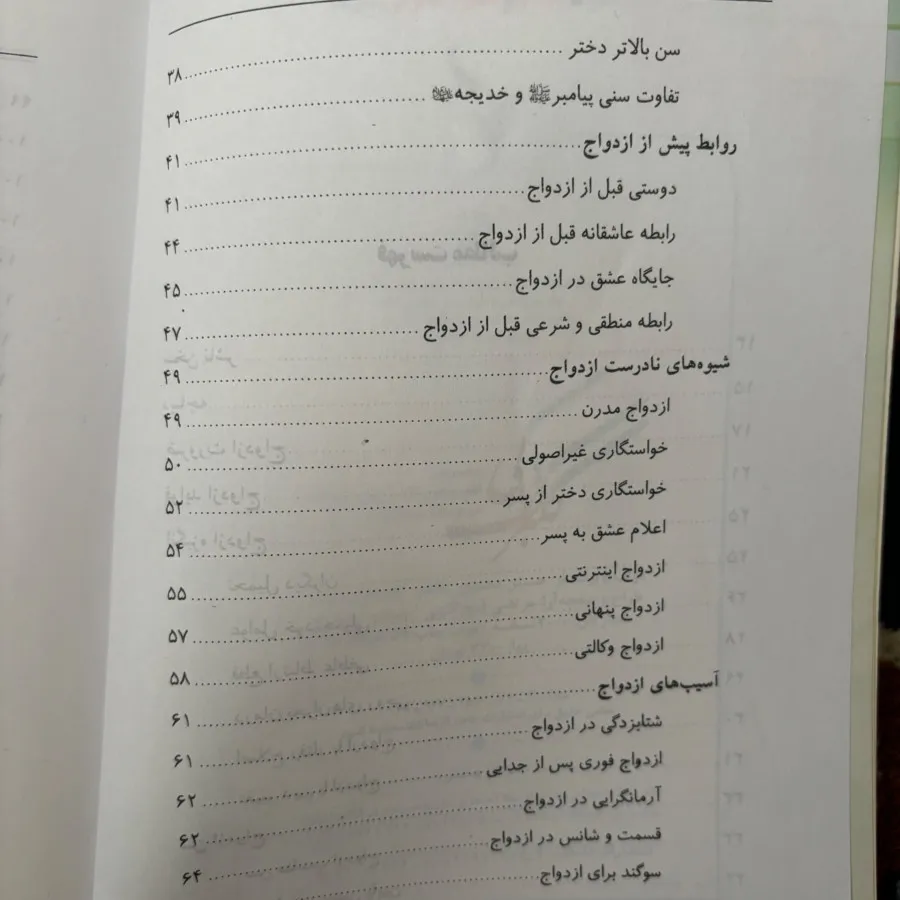 سن بالاتر دختر ........ ۳۸
تفاوت سنی پیامبرﷺ و خدیجه ........ ۳۹
روابط پیش از ازدواج ........ ۴۱
دوستی قبل از ازدواج ........ ۴۱
رابطه عاشقانه قبل از ازدواج ........ ۴۴
جایگاه عشق در ازدواج ........ ۴۵
رابطه منطقی و شرعی قبل از ازدواج ........ ۴۷
شیوه‌های نادرست ازدواج ........ ۴۹
ازدواج مدرن ........ ۴۹
خواستگاری غیراصولی ........ ۵۰
خواستگاری دختر از پسر ........ ۵۲
اعلام عشق به پسر ........ ۵۴
ازدواج اینترنتی ........ ۵۵
ازدواج پنهانی ........ ۵۷
ازدواج وکالتی ........ ۵۸
آسیب‌های ازدواج ........ ۶۱
شتابزدگی در ازدواج ........ ۶۱
ازدواج فوری پس از جدایی ........ ۶۲
آرمانگرایی در ازدواج ........ ۶۲
قسمت و شانس در ازدواج ........ ۶۴
سوگند برای ازدواج ........